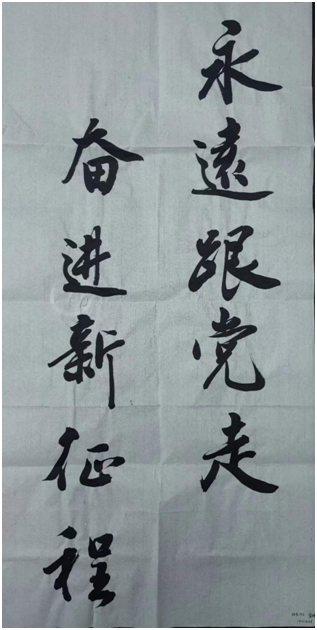 永遠跟党走
奋进新征程